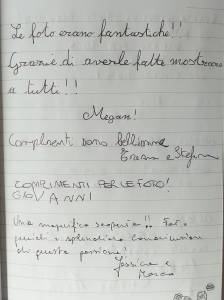 Le foto erano fantastiche!!
Grazie di averle fatte mostrare
a tutti!!
Megan!
Complimenti sono bellissime
COMPLIMENTI PER LE FOTO!
GIOVANNI!
Una magnifica scoperta!! Foto
e splendide
di questa passione!
Jessica e
Marco